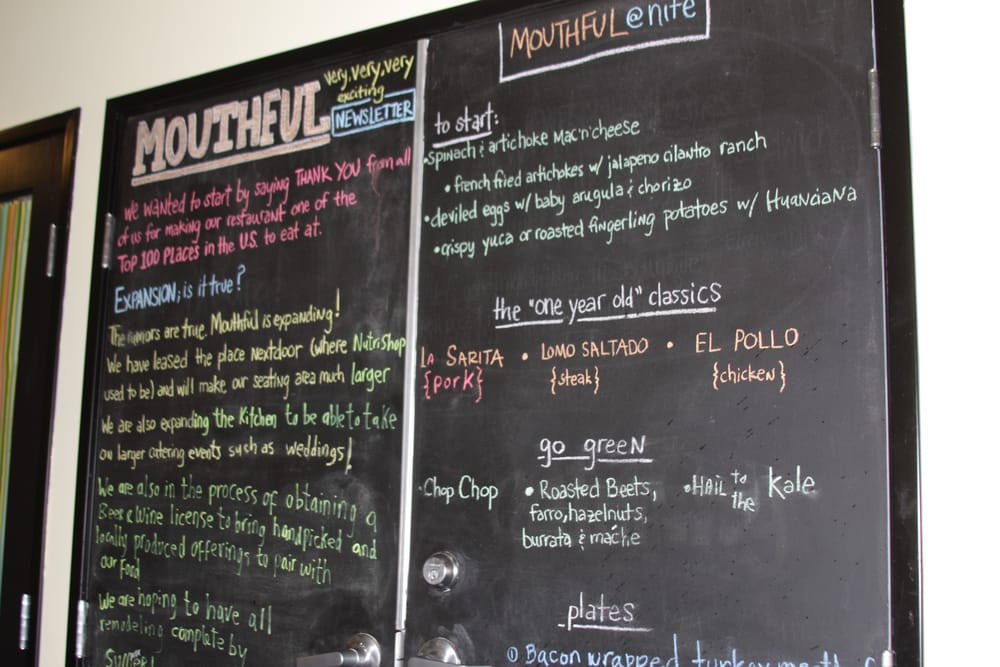 MOUTHFUL
very, very, very
exciting
NEWSLETTER
We wanted to start by saying THANK YOU from all
of us for making our restaurant one of the
Top 100 Places in the U.S. to eat at.
EXPANSION; is it true?
The rumors are true. Mouthful is expanding!
We have leased the place Nextdoor (where NutriShop
used to be) and will make our seating area much larger
We are also expanding the Kitchen to be able to take
on larger catering events such as weddings!
We are also in the process of obtaining a
Beer & Wine license to bring handpicked and
locally produced offerings to pair with
our Food
We are hoping to have all
remodeling complete by
MOUTHFUL@nite
to start:
•spinach & artichoke Mac'n'cheese
•french fried artichokes w/ jalapeno cilantro ranch
•deviled eggs w/ baby arugula & chorizo
•crispy yuca or roasted fingerling potatoes w/ Huanciana
the "one year old" classics
LA SARITA • LOMO SALTADO • EL POLLO
{pork} {steak} {chicken}
go green
•Chop Chop
•Roasted Beets,
farro, hazelnuts,
burrata & mache
•HAIL to the Kale
plates
① Bacon wrapped turkey